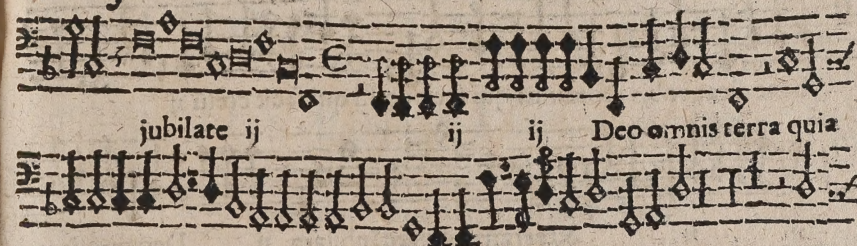 jubilate ij ij ij Deo omnis terra quia